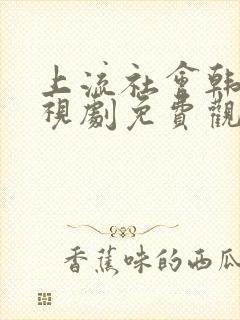 上流社會韓
視劇免費觀
香蕉味的西瓜